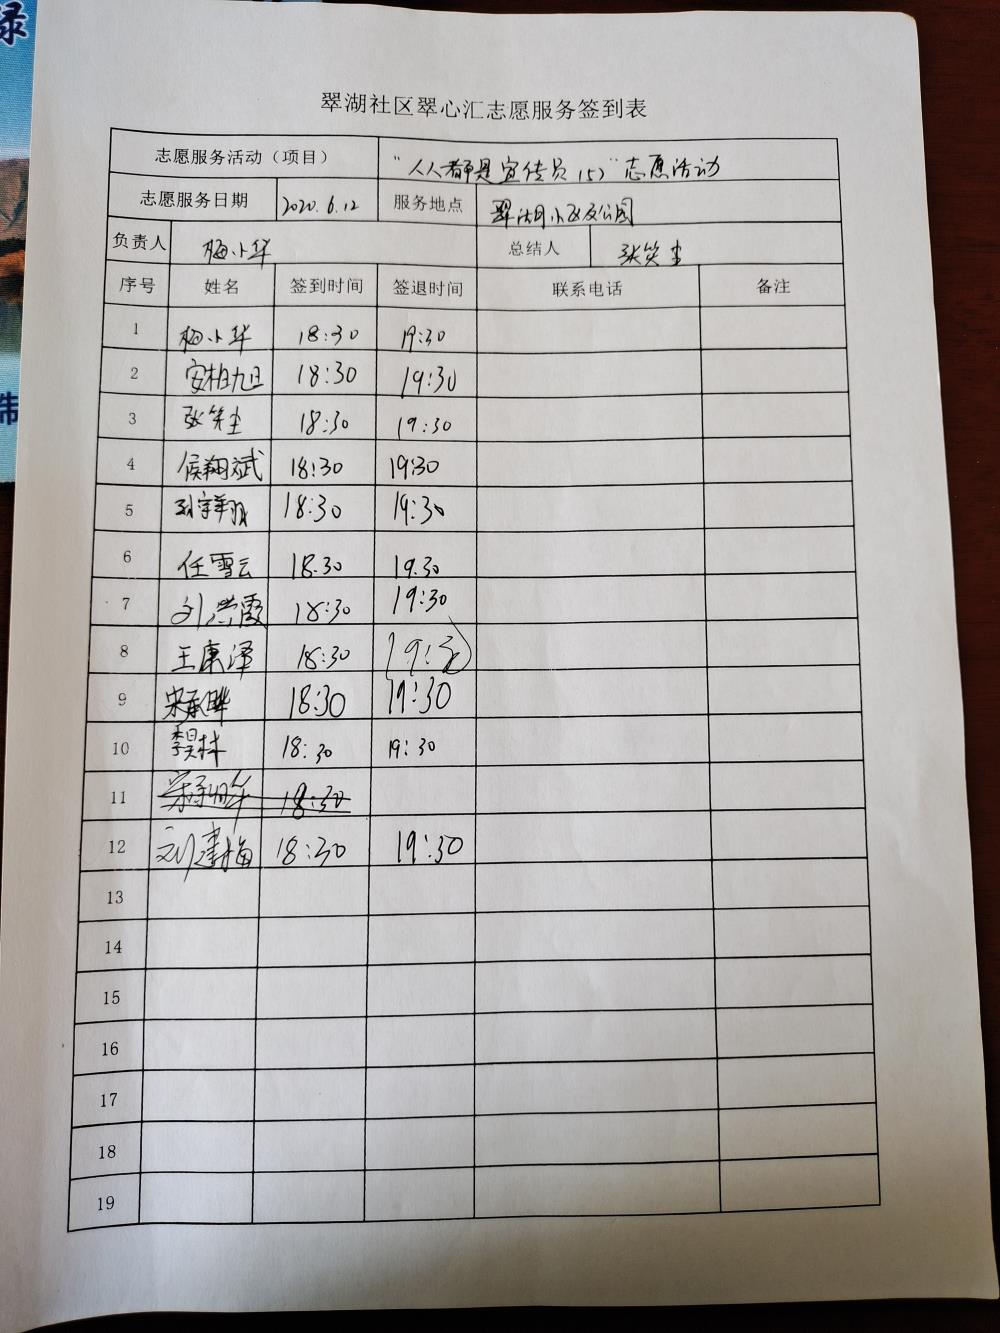 绿
翠湖社区翠心汇志愿服务签到表
志愿服务活动（项目） “人人都是宣传员（5）”志愿活动
志愿服务日期 2020.6.12 服务地点 翠湖小区及公园
负责人 梅小华 总结人 张笑
序号 姓名 签到时间 签退时间 联系电话 备注
1 梅小华 18:30 19:30
2 安柏旭 18:30 19:30
3 张笑 18:30 19:30
4 侯翔斌 18:30 19:30
5 18:30 19:30
6 任雪云 18.30 19.30
7 刘洪霞 18:30 19:30
8 王康泽 18:30 19:30
9 宋承晔 18:30 19:30
10 18:30 19:30
11 18:30
12 刘建梅 18:30 19:30
13
14
15
16
17
18
19